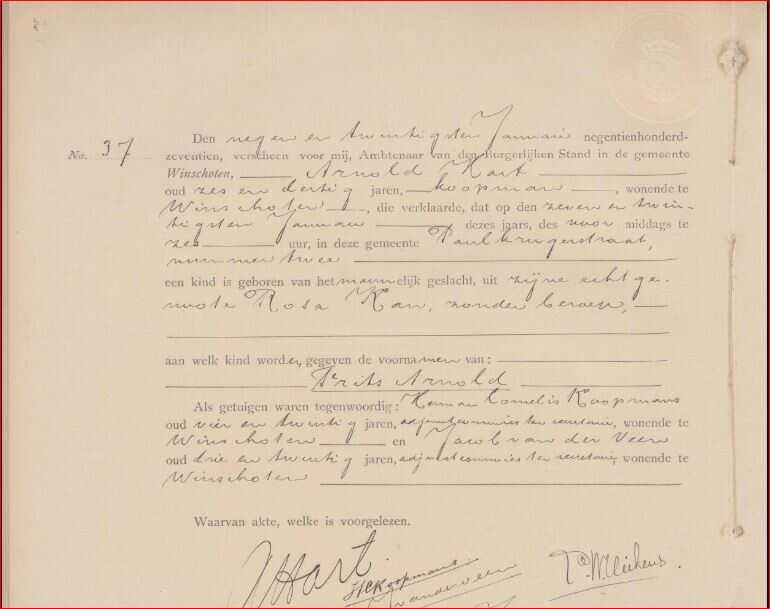 No. 37
Den negen en twintigsten Januari negentienhonderd-
zeventien, verscheen voor mij, Ambtenaar van den Burgerlijken Stand in de gemeente
Winschoten, Arnold Hart
oud zes en dertig jaren, koopman, wonende te
Winschoten, die verklaarde, dat op den zeven en twin-
tigsten Januari dezes jaars, des voor middags te
zes uur, in deze gemeente Paul krugerstraat,
nummer twee
een kind is geboren van het mannelijk geslacht, uit zijne echtge-
noote Rosa Kan, zonder beroep,
aan welk kind worden gegeven de voornamen van:
Frits Arnold
Als getuigen waren tegenwoordig: Herman Cornelis Koopmans
oud vier en twintig jaren, adjunctcommies ter secretarie, wonende te
Winschoten en Jacob van der Veen
oud drie en twintig jaren, adjunctcommies ter secretarie, wonende te
Winschoten
Waarvan akte, welke is voorgelezen.
AHart.
HCKoopmans
JvanderVeen